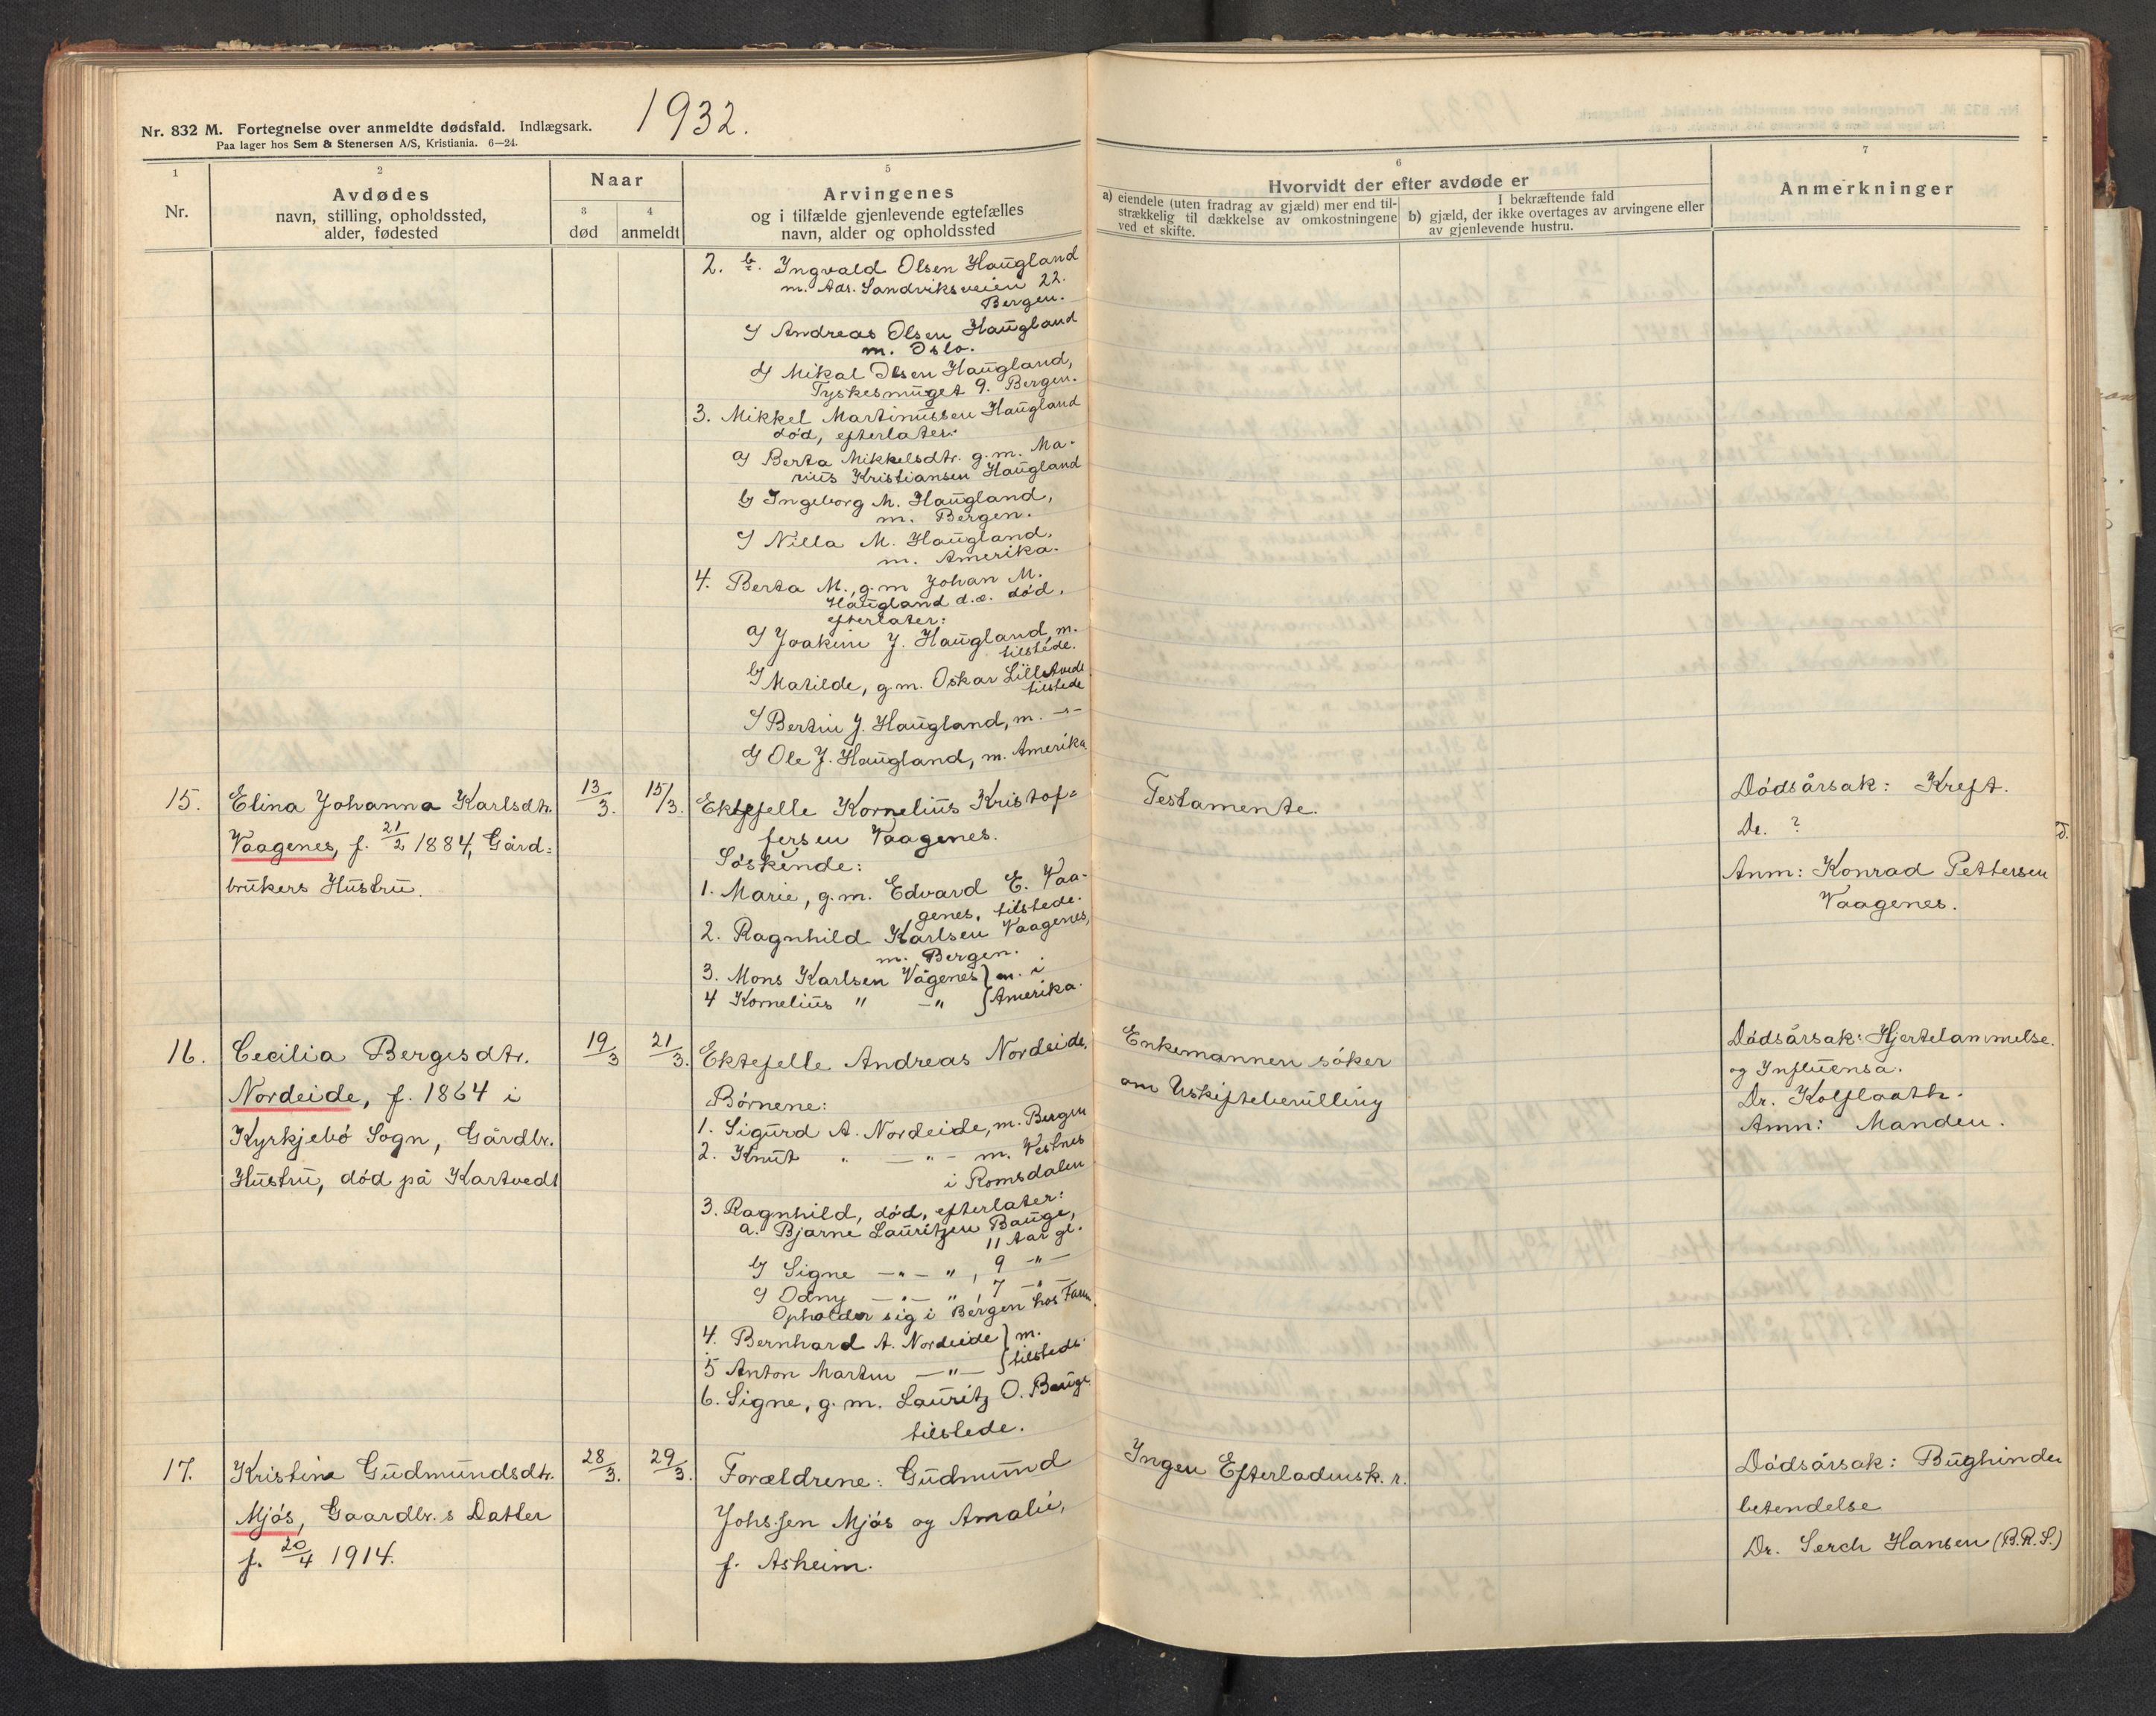 1932.
Nr. 832 M. Fortegnelse over anmeldte dødsfald. Indlægsark.
Paa lager hos Sem & Stenersen A/S, Kristiania. 6—24.
1
Nr.
2
Avdødes
navn, stilling, opholdssted,
alder, fødested
Naar
3
død
4
anmeldt
5
Arvingenes
og i tilfælde gjenlevende egtefælles
navn, alder og opholdssted
6
Hvorvidt der efter avdøde er
a) eiendele (uten fradrag av gjæld) mer end til-
strækkelig til dækkelse av omkostningene
ved et skifte.
I bekræftende fald
b) gjæld, der ikke overtages av arvingene eller
av gjenlevende hustru.
7
Anmerkninger
2. b. Ingvald Olsen Haugland
m. Adr. Sandviksveien 22.
Bergen.
c/ Andreas Olsen Haugland
m. Oslo.
d/ Mikal Olsen Haugland,
Tyskesmuget 9. Bergen.
3. Mikkel Martinussen Haugland
død, efterlater:
a/ Berta Mikkelsdtr. g.m. Ma-
rius Kristiansen Haugland
b/ Ingeborg M. Haugland,
m. Bergen.
c/ Nilla M. Haugland,
m. Amerika.
4. Berta M., g.m Johan M.
Haugland d.e. død,
efterlater:
a/ Joakim J. Haugland, m.
tilstede.
b/ Matilde, g.m. Oskar Lilletvedt
tilstede
c/ Bertin J. Haugland, m. -"-
d/ Ole J. Haugland, m. Amerika
15.
Elina Johanna Karlsdtr.
Vaagenes, f. 21/2 1884, Gård-
brukers Hustru.
13/3.
15/3.
Ektefelle Kornelius Kristof-
fersen Vaagenes.
Søskende:
1. Marie, g.m. Edvard E. Vaa-
genes, tilstede.
2. Ragnhild Karlsen Vaagenes,
m. Bergen.
3. Mons Karlsen Vågenes } m. i
4 Kornelius " -" } Amerika.
Testamente.
Dødsårsak: Kreft.
Dr. ?
Anm: Konrad Pettersen
Vaagenes.
16.
Cecilia Bergesdtr.
Nordeide, f. 1864 i
Kyrkjebø Sogn, Gårdbr.
Hustru, død på Kartvedt
19/3
21/3.
Ektefelle Andreas Nordeide.
Børnene:
1. Sigurd A. Nordeide, m. Bergen
2. Knut " -"- m. Vestnes
i Romsdalen
3. Ragnhild, død, efterlater:
a. Bjarne Lauritzen Bauge,
11 Aar gl.
b/ Signe -"- ", 9 -"-
c/ Odny -"- ", 7 -"-
Opholder sig i Bergen hos Farm.
4. Bernhard A. Nordeide } m.
5 Anton Martin -"- } tilstede.
6. Signe, g.m. Lauritz O. Bauge
tilstede.
Enkemannen søker
om Uskiftebevilling
Dødsårsak: Hjertelammelse.
og Influensa.
Dr. Kolflaath.
Amn: Manden.
17.
Kristine Gudmundsdtr.
Mjøs, Gaardbr.s Datter
f. 20/4 1914.
28/3.
29/3.
Forældrene: Gudmund
Johs.sen Mjøs og Amalie,
f. Åsheim.
Ingen Efterladensk. r.
Dødsårsak: Bughinde
betendelse
Dr. Serch Hansen (B.R.S.)